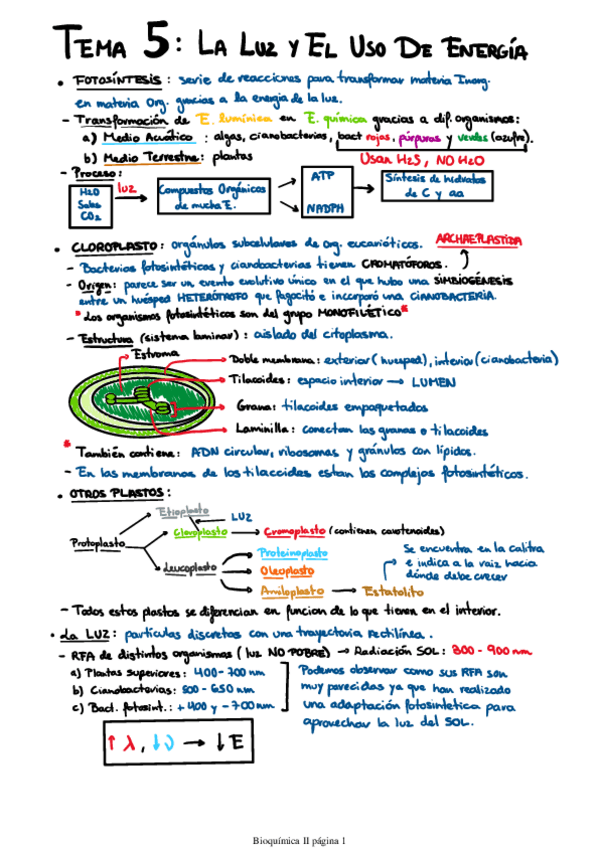 TEMA 5: LA LUZ Y EL USO DE ENERGÍA
• FOTOSÍNTESIS: serie de reacciones para transformar materia Inorg.
en materia Org. gracias a la energía de la luz.
- Transformación de E. lumínica en E. química gracias a dif. organismos:
a) Medio Acuático: algas, cianobacterias, bact rojas, púrpuras y verdes (azufre).
b) Medio Terrestre: plantas
Usan H2S, NO H2O
- Proceso:
H2O
Sales
CO2
luz
Compuestos Orgánicos
de mucha E.
ATP
NADPH
Síntesis de hidratos
de C y aa
• CLOROPLASTO: orgánulos subcelulares de org. eucarióticos. ARCHAEPLASTIDA
- Bacterias fotosintéticas y cianobacterias tienen CROMATÓFOROS.
- Origen: parece ser un evento evolutivo único en el que hubo una SIMBIOGÉNESIS
entre un huésped HETERÓTROFO que fagocitó e incorporó una CIANOBACTERIA.
* Los organismos fotosintéticos son del grupo MONOFILÉTICO *
- Estructura (sistema laminar): aislado del citoplasma.
Estroma
Doble membrana: exterior (huesped), interior (cianobacteria)
Tilacoides: espacio interior → LUMEN
Grana: tilacoides empaquetados
Laminilla: conectan las granas o tilacoides
* También contiene: ADN circular, ribosomas y gránulos con lípidos.
- En las membranas de los tilacoides estan los complejos fotosintéticos.
• OTROS PLASTOS:
Etioplasto
LUZ
Protoplasto
Cloroplasto → Cromoplasto (contienen carotenoides)
Leucoplasto
Proteinoplasto
Oleoplasto
Amiloplasto → Estatolito
Se encuentra en la
e indica a la raiz hacia
dónde debe crecer
- Todos estos plastos se diferencian en funcion de lo que tienen en el interior.
• La LUZ: partículas discretas con una trayectoria rectilínea.
- RFA de distintos organismos (luz NO POBRE) → Radiación SOL: 300-900 nm
a) Plantas superiores: 400-700 nm
b) Cianobacterias: 500-650 nm
c) Bact. fotosint.: +400 y -700 nm
Podemos observar como sus RFA son
muy parecidas ya que han realizado
una adaptación fotosintética para
aprovechar la luz del SOL.
↑ λ, ↓ υ → ↓ E
Bioquímica II página 1